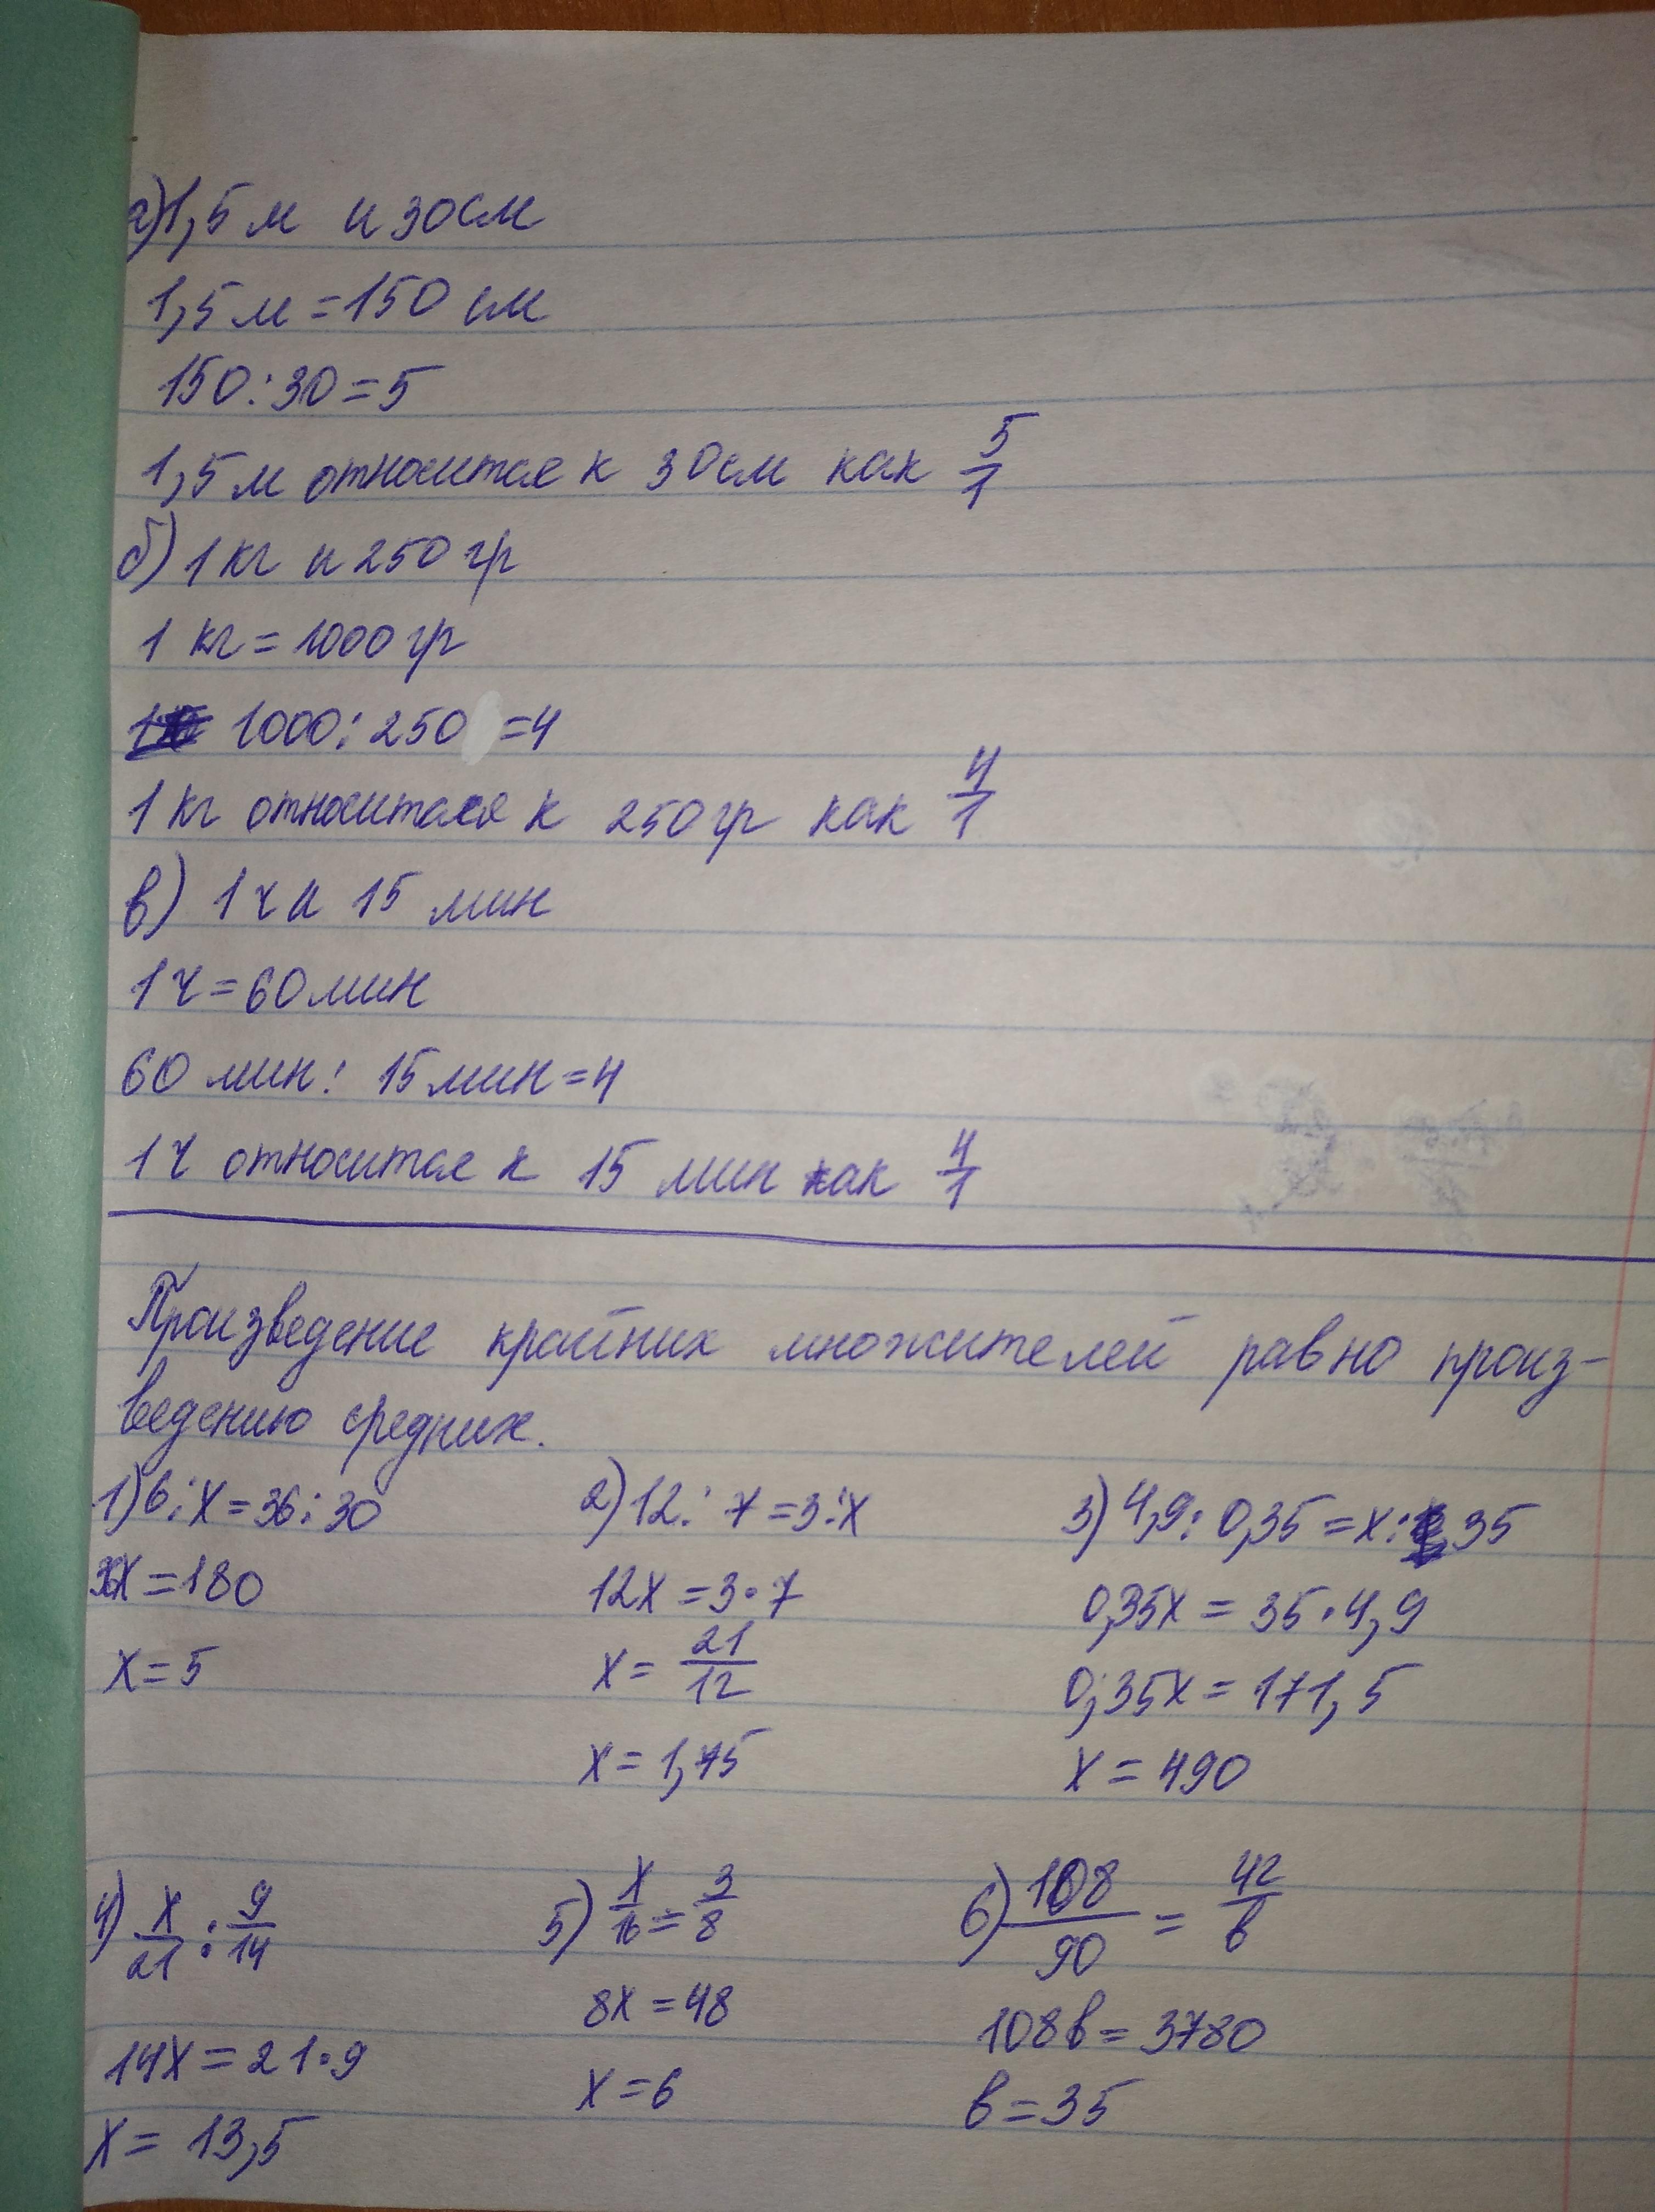 а) 1,5 м и 30 см
1,5 м = 150 см
150 : 30 = 5
1,5 м относится к 30 см как 5/1
б) 1 кг и 250 гр
1 кг = 1000 гр
1000 : 250 = 4
1 кг относится к 250 гр как 4/1
в) 1 ч и 15 мин
1 ч = 60 мин
60 мин : 15 мин = 4
1 ч относится к 15 мин как 4/1
Произведение крайних множителей равно произ-
ведению средних.
1) 6 : х = 36 : 30 2) 12 : 7 = 3 : х 3) 4,9 : 0,35 = х : 35
х = 180 12х = 3 · 7 0,35х = 35 · 4,9
х = 5 х = 21/12 0,35х = 171,5
х = 1,75 х = 490
4) х/21 : 9/14 5) х/16 = 3/8 6) 108/90 = 42/в
14х = 21 · 9 8х = 48 108в = 3780
х = 13,5 х = 6 в = 35